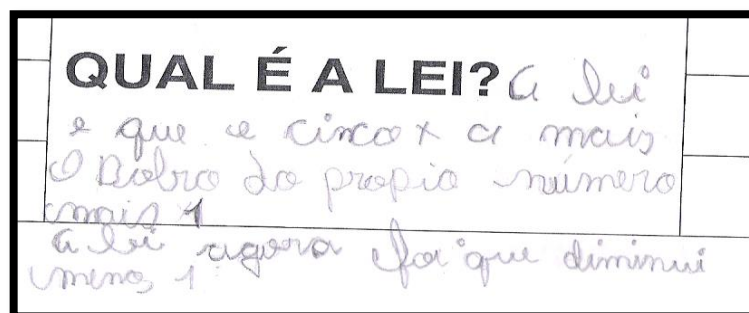 QUAL É A LEI? a lei
e que e cinco x a mais
O Dobro do propio número
mais 1
a lei agora foi que diminui
menos 1